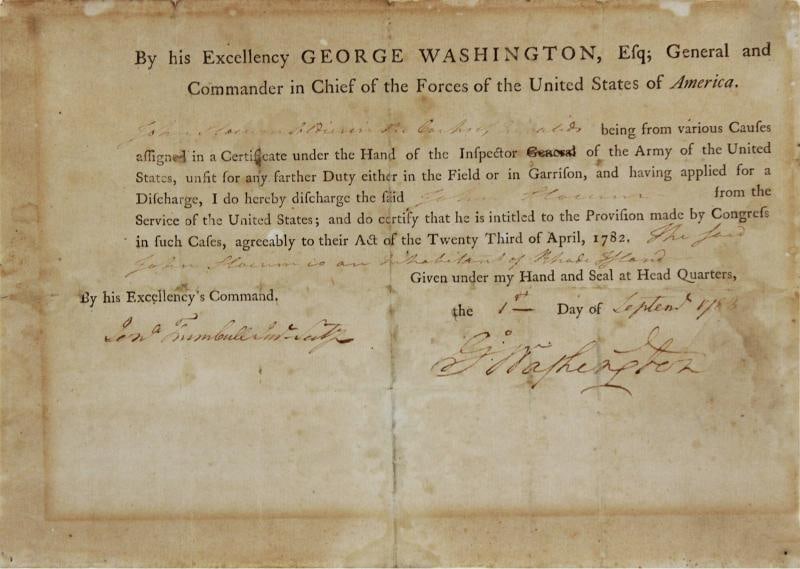 By his Excellency GEORGE WASHINGTON, Eſq; General and
Commander in Chief of the Forces of the United States of America.
John Slocum Soldier in the Corps of Invalids being from various Cauſes
aſſigned in a Certificate under the Hand of the Inſpector General of the Army of the United
States, unfit for any farther Duty either in the Field or in Garriſon, and having applied for a
Diſcharge, I do hereby diſcharge the ſaid John Slocum from the
Service of the United States; and do certify that he is intitled to the Proviſion made by Congreſs
in ſuch Caſes, agreeably to their Act of the Twenty Third of April, 1782. The ſaid
John Slocum is an inhabitant of Rhode Iſland
Given under my Hand and Seal at Head Quarters,
By his Excellency's Command,
the 1st Day of Septemr 178
Jona Trumbull Junr Secty
Go Washington